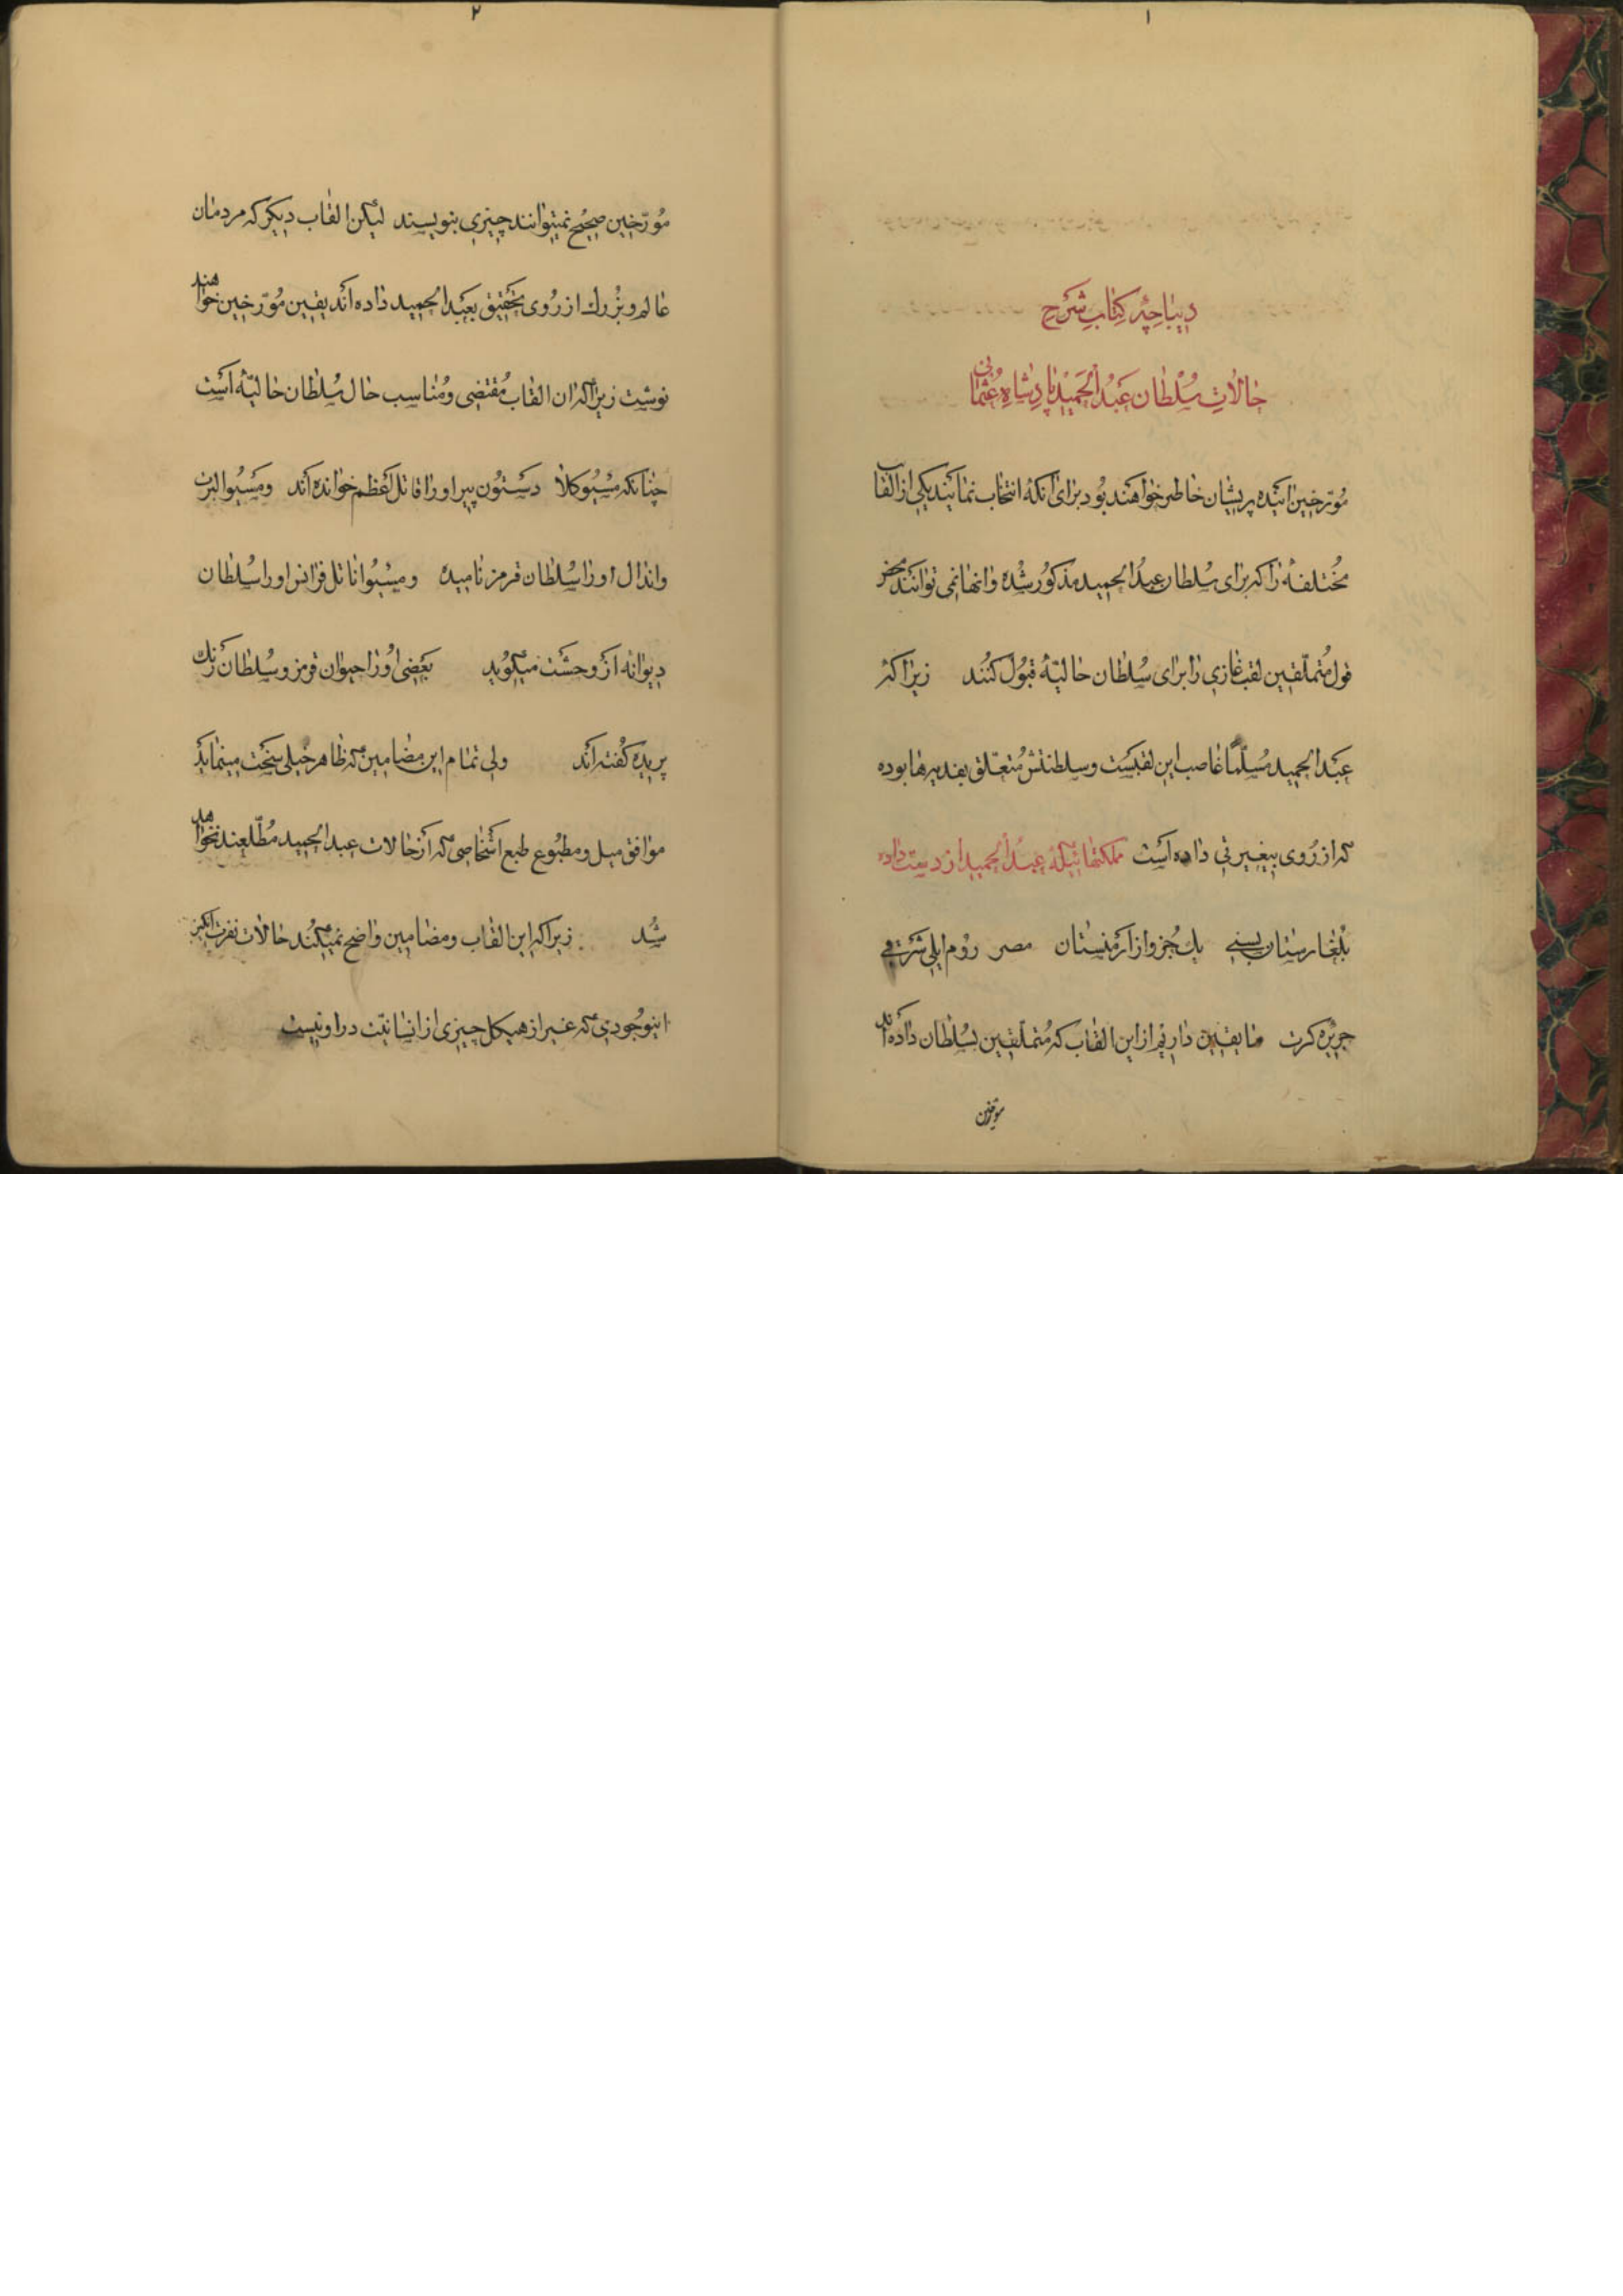 ۱
دیباچهٔ کتاب شرح
حالات سلطان عبد الحمید پادشاه عثمانی
مورّخین آینده پریشان خاطر خواهند بود برای آنکه انتخاب نمایند یکی از القاب
مختلفهٔ را که برای سلطان عبد الحمید مذکور شده و انها نمی توانند محض
قول متملّقین لقب غازی را برای سلطان حالیّه قبول کنند زیرا که
عبد الحمید مسلّماً غاصب این لقبست و سلطنتش متعلّق بقدیرها بوده
که از روی بیغیرتی داده است مملکتهائیکه عبد الحمید از دست داده
بلغارستان بسنی یك جزو از ارمنستان مصر روم ایلی شرقی
جزیره کرت ما یقین داریم از این القاب که متملّقین بسلطان داده اند
مورّخین
۲
مورّخین صحیح نمیتوانند چیزی بنویسند لیکن القاب دیکر که مردمان
عالم و بزرك از روی تحقیق بعبد الحمید داده اند یقین مورّخین خواهند
نوشت زیرا که ان القاب مقتضی و مناسب حال سلطان حالیّه است
چنانکه مسیو کلا دستون پیر او را قاتل اعظم خوانده اند و مسیو البرت
واندال او را سلطان قرمز نامیده و مسیو اناتل فرانس او را سلطان
دیوانه از وحشت میکوید بعضی او را حیوان قرمز و سلطان رنك
پریده کفته اند ولی تمام این مضامین که ظاهر خیلی سخت مینماید
موافق میل و مطبوع طبع اشخاصی که از حالات عبد الحمید مطّلعند نخواهد
شد زیرا که این القاب و مضامین واضح نمیکند حالات نفرت انکیز
اینوجودی که غیر از هیکل چیزی از انسانیّت در او نیست